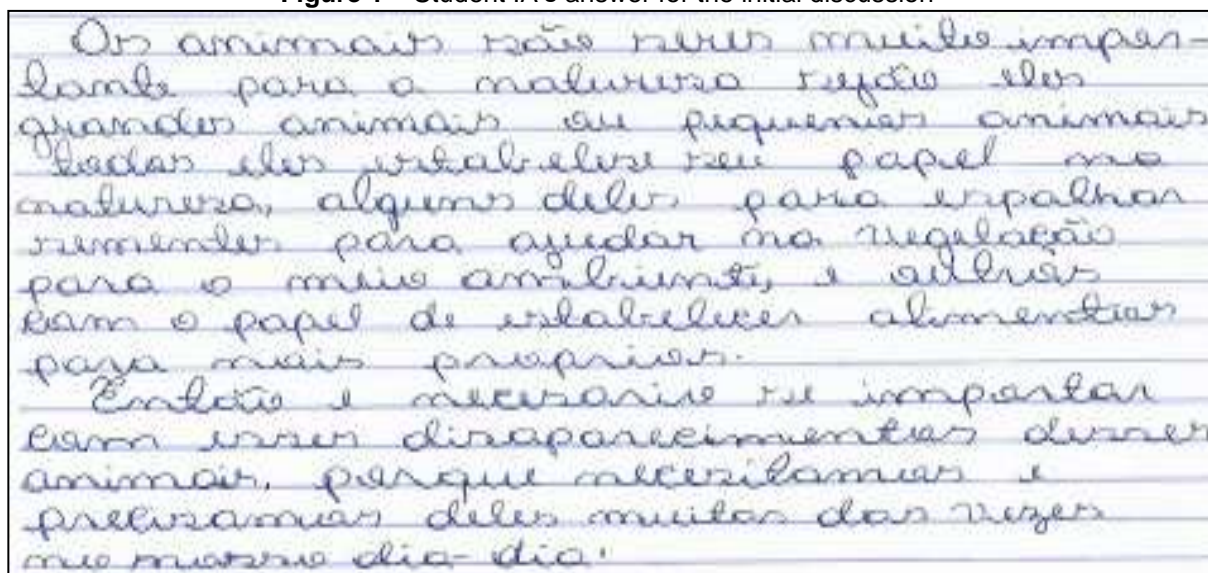 Os animais são seres muito impor-
tante para a natureza sejão eles
grandes animais ou pequenios animais
todos eles estabelese seu papel na
natureza, alguns deles para espalhar
sementes para ajudar na vegetação
para o meio ambiente, e outros
com o papel de estabelecer alimentos
para nois proprios.
Então e necesario se importar
com esses disaparecimentos desses
animais, porque necesitamos e
precisamos deles muitas das vezes
no nosso dia-dia.